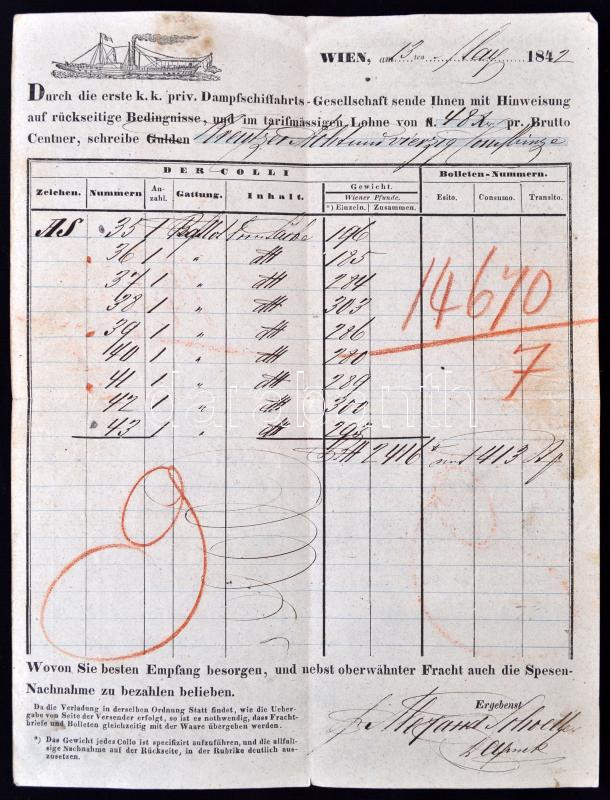 WIEN, am 13 ten May 1842
Durch die erste k. k. priv. Dampfschiffahrts-Gesellschaft sende Ihnen mit Hinweisung
auf rückseitige Bedingnisse, und im tarifmässigen Lohne von fl. 48 Xr pr. Brutto
Centner, schreibe Gulden Kreutzer Acht und vierzig
DER COLLI Bolleten-Nummern.
Zeichen. Nummern An-zahl. Gattung. Inhalt. Gewicht. Wiener Pfunde. *) Einzeln. Zusammen. Esito. Consumo. Transito.
AS 35 1 Ballot 196
36 1 " dtt 185
37 1 " dtt 284
38 1 " dtt 303
39 1 " dtt 286
40 1 " dtt 280
41 1 " dtt 289
42 1 " dtt 300
43 1 " dtt 293
2416 413
14670
7
darabanth
Wovon Sie besten Empfang besorgen, und nebst oberwähnter Fracht auch die Spesen-
Nachnahme zu bezahlen belieben.
Da die Verladung in derselben Ordnung Statt findet, wie die Ueber-
gabe von Seite der Versender erfolgt, so ist es nothwendig, dass Fracht-
briefe und Bolleten gleichzeitig mit der Waare übergeben werden.
*) Das Gewicht jedes Collo ist specifizirt aufzuführen, und die allfäl-
lige Nachnahme auf der Rückseite, in der Rubrike deutlich aus-
zusetzen.
Ergebenst